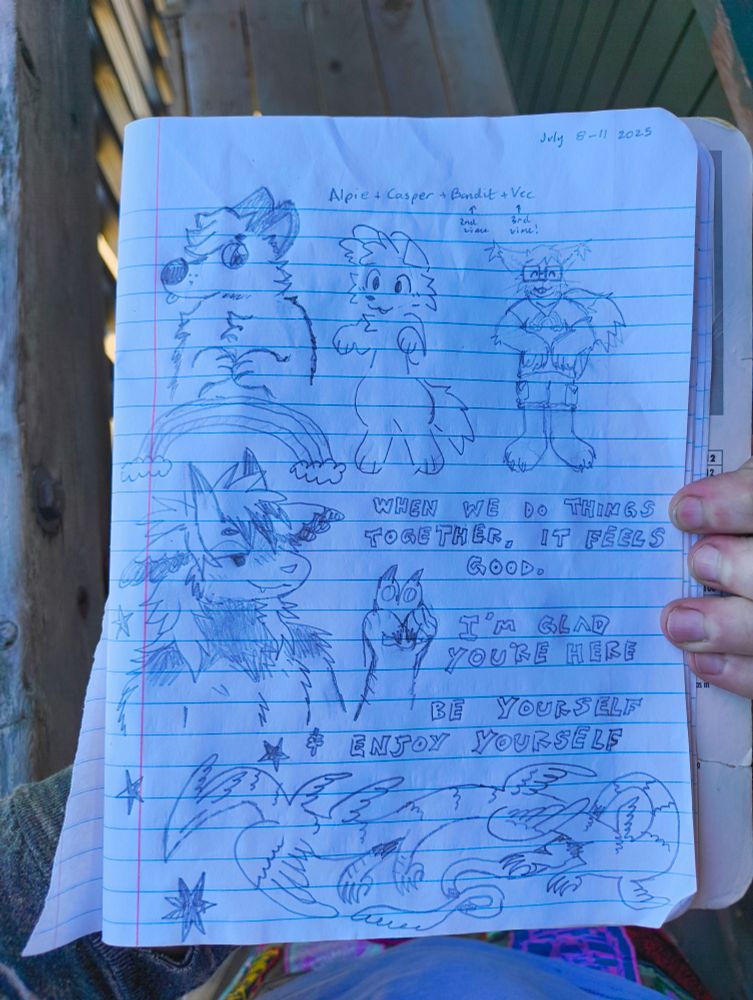 July 8-11 2025
Alpie + Casper + Bandit + Vec
↑ ↑
2nd 3rd
time time!
WHEN WE DO THINGS
TOGETHER, IT FEELS
GOOD.
I'M GLAD
YOU'RE HERE
BE YOURSELF
& ENJOY YOURSELF
2
12